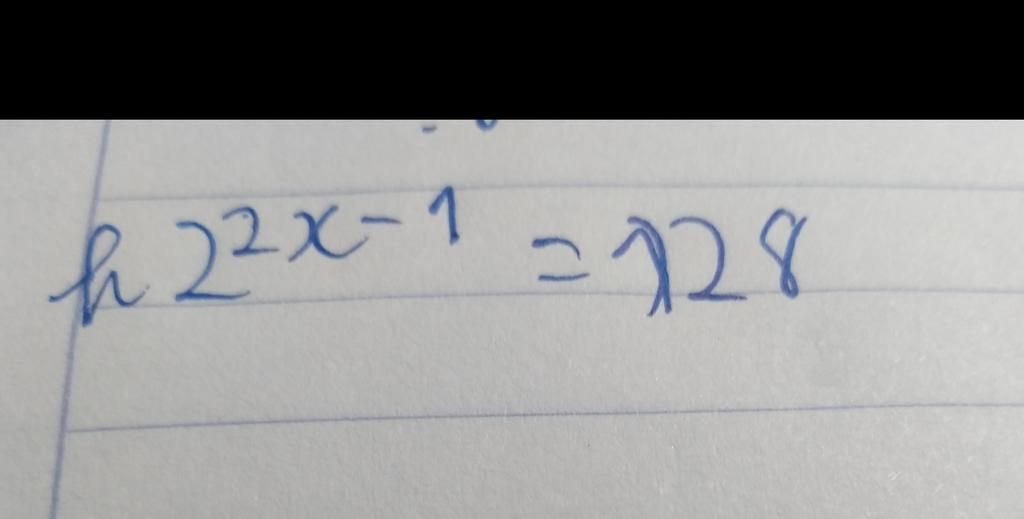 h 2^{2x-1} = 128